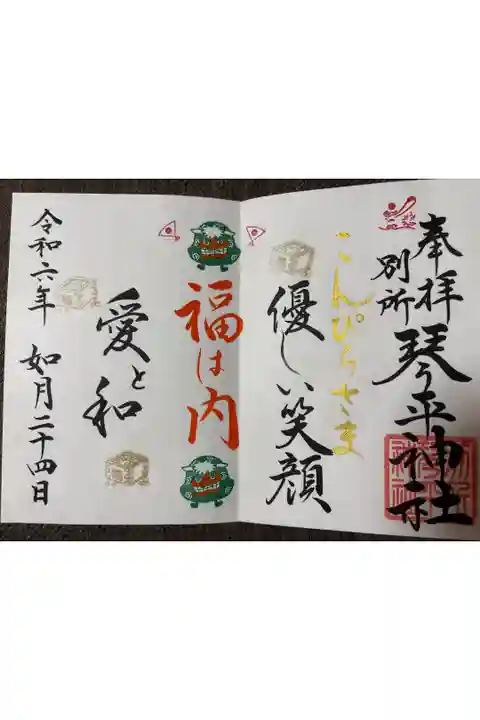 奉拝
別所
琴平神社
こんぴらさま
優しい笑顔
福は内
愛と和
令和六年 如月二十四日